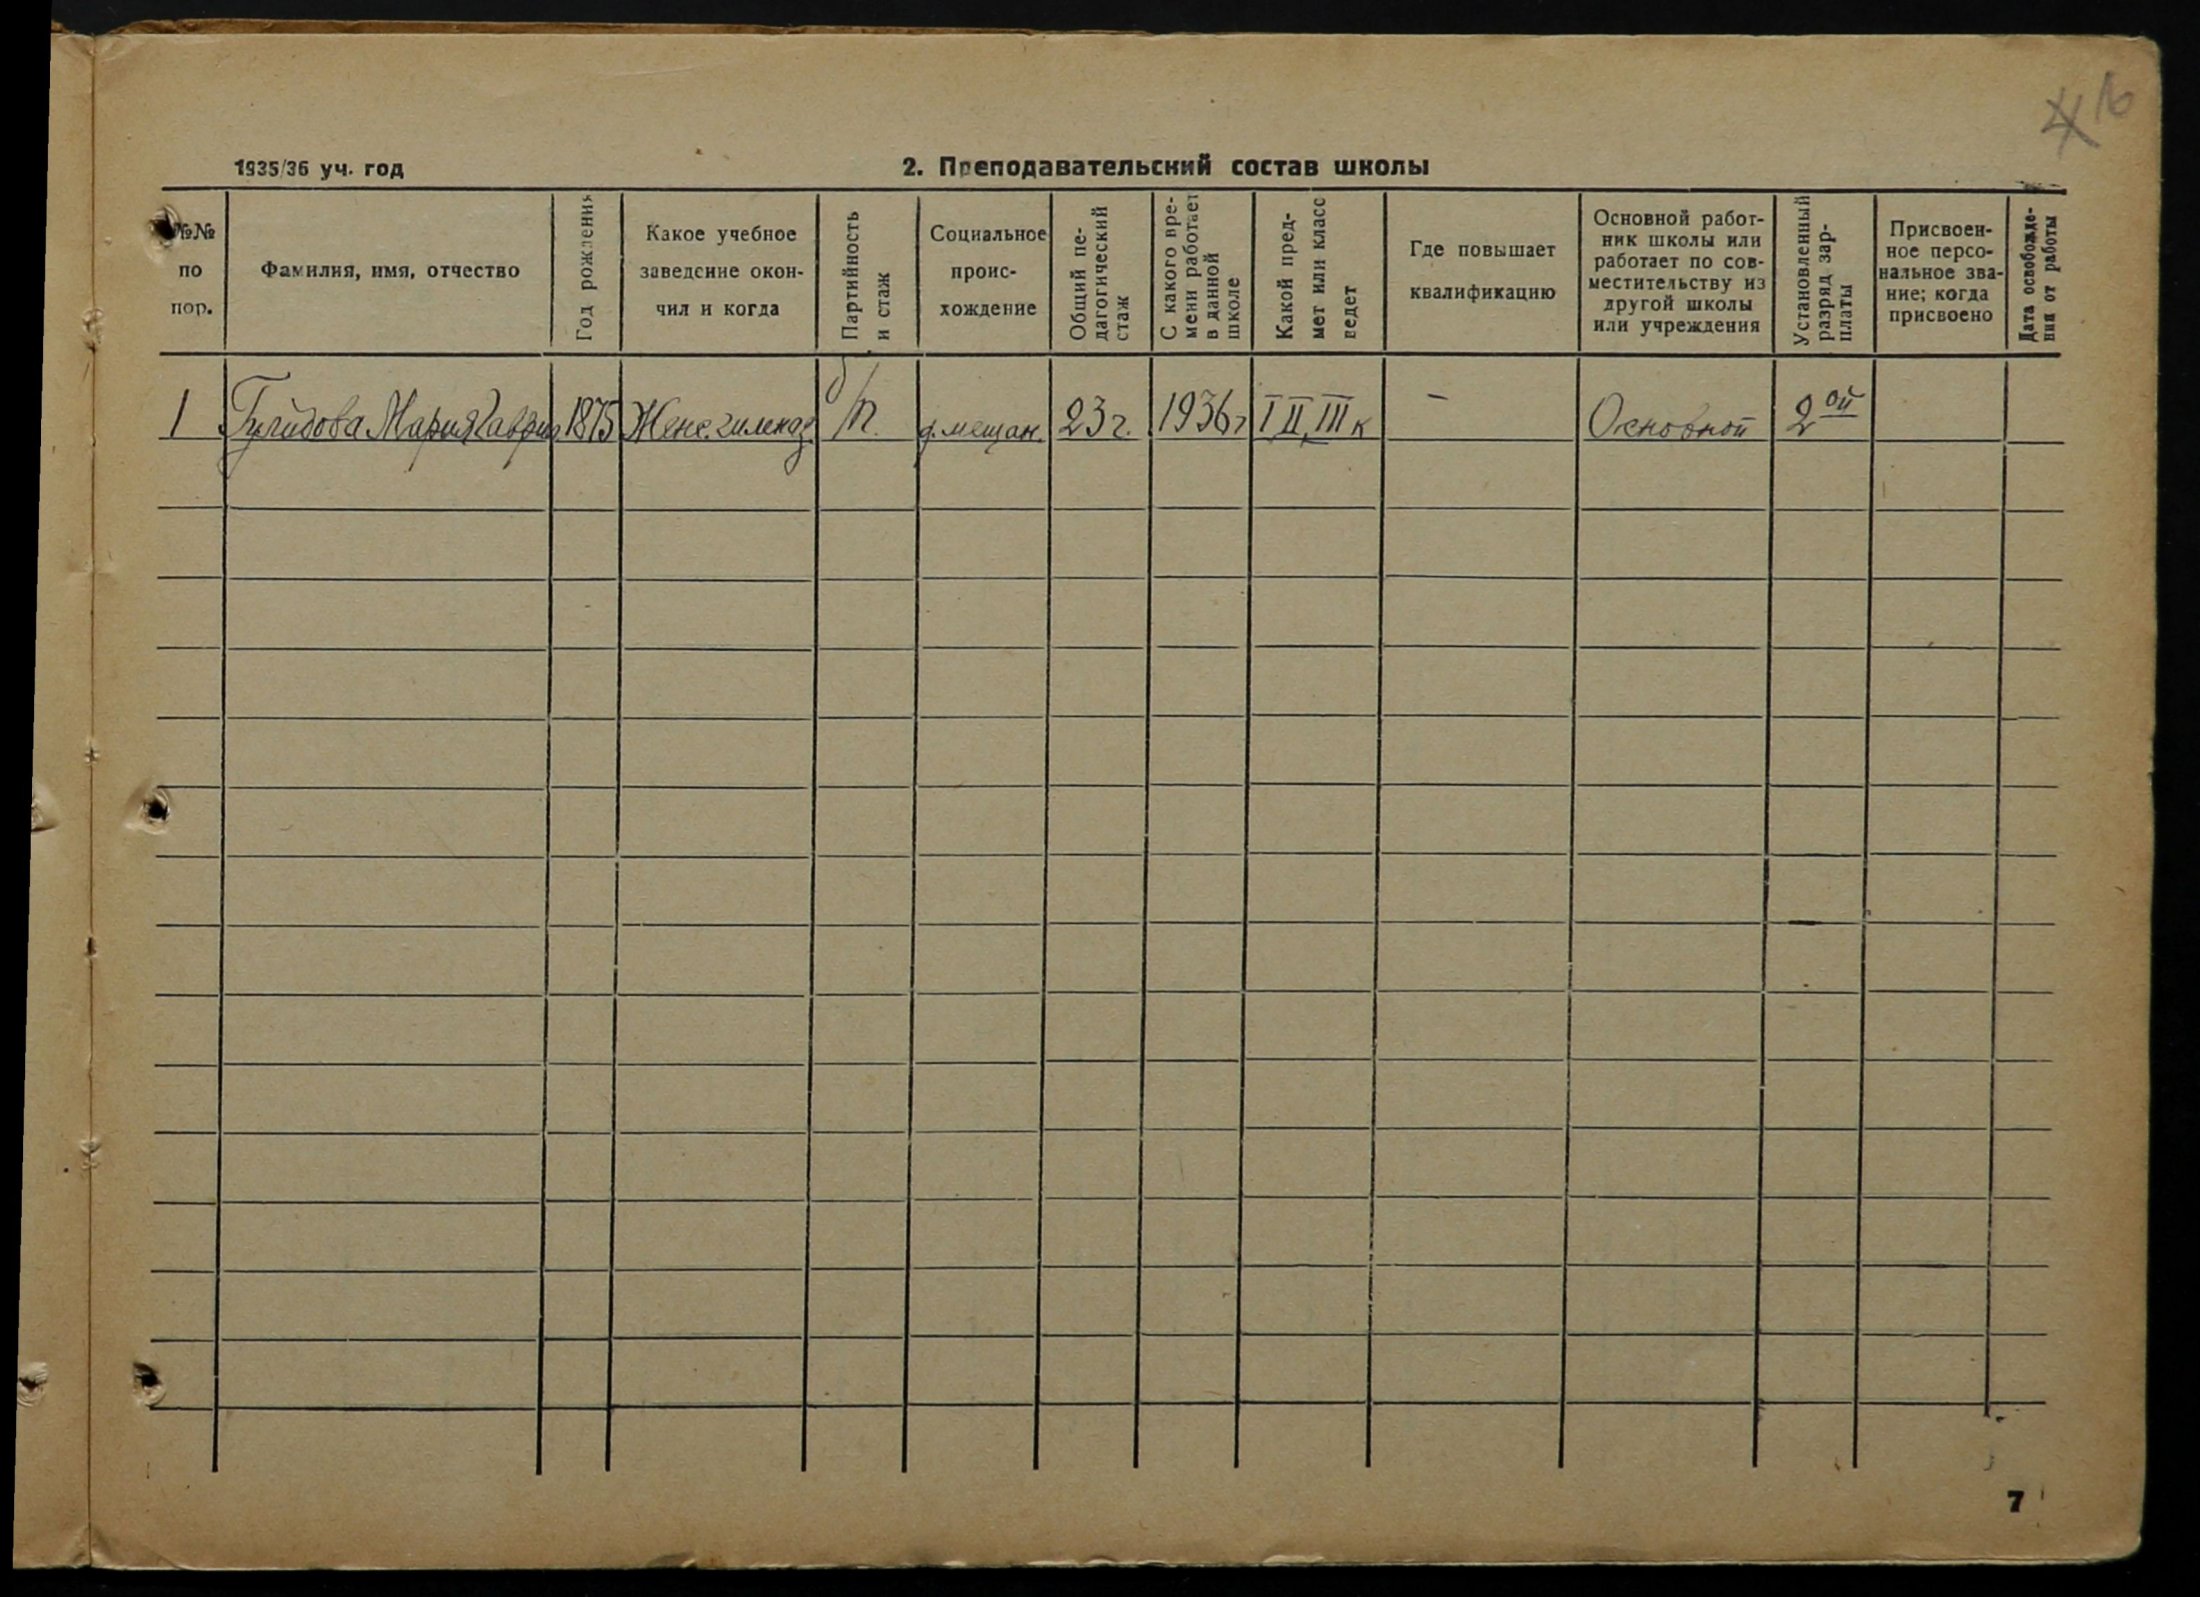 16
1935/36 уч. год
2. Преподавательский состав школы
№№ по пор.
Фамилия, имя, отчество
Год рождения
Какое учебное заведение окончил и когда
Партийность и стаж
Социальное проис- хождение
Общий пе- дагогический стаж
С какого вре- мени работает в данной школе
Какой пред- мет или класс ведет
Где повышает квалификацию
Основной работ- ник школы или работает по сов- местительству из другой школы или учреждения
Установленный разряд зар- платы
Присвоен- ное персо- нальное зва- ние; когда присвоено
Дата освобожде- ния от работы
1 Мария Гаврил 1875 Женс. гимназ. б/п. 23 г. 1936 г I II III к – Основной 2ой
7